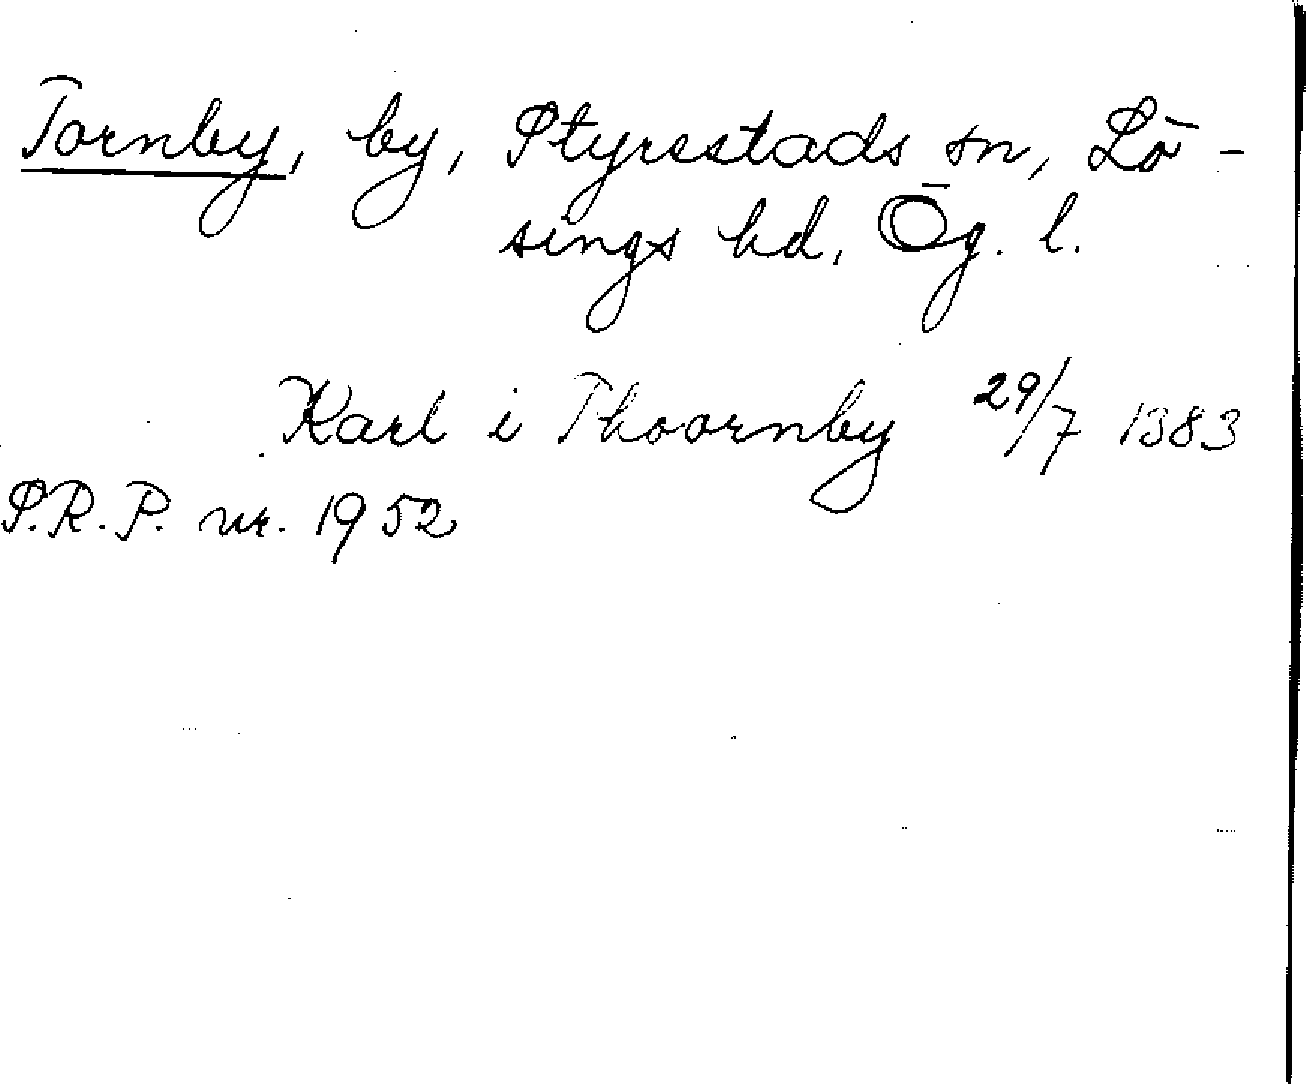 Tornby, by, Styrestads sn, Lö-
sings hd, Ög. l.
Karl i Thoornby 29/7 1383
S.R.P. nr. 1952